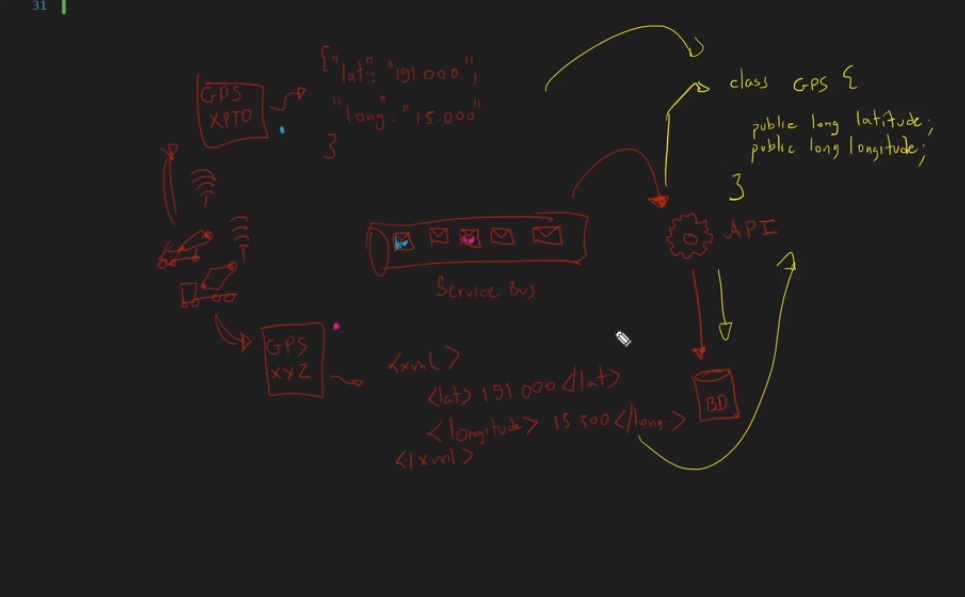 31
{"lat": "191.000",
"long": "15.000"
}
GPS
XPTO
class GPS {
public long latitude;
public long longitude;
}
API
Service Bus
GPS
XYZ
<xml>
<lat> 191 000 </lat>
<longitude> 15.500 </long.>
</xml>
BD